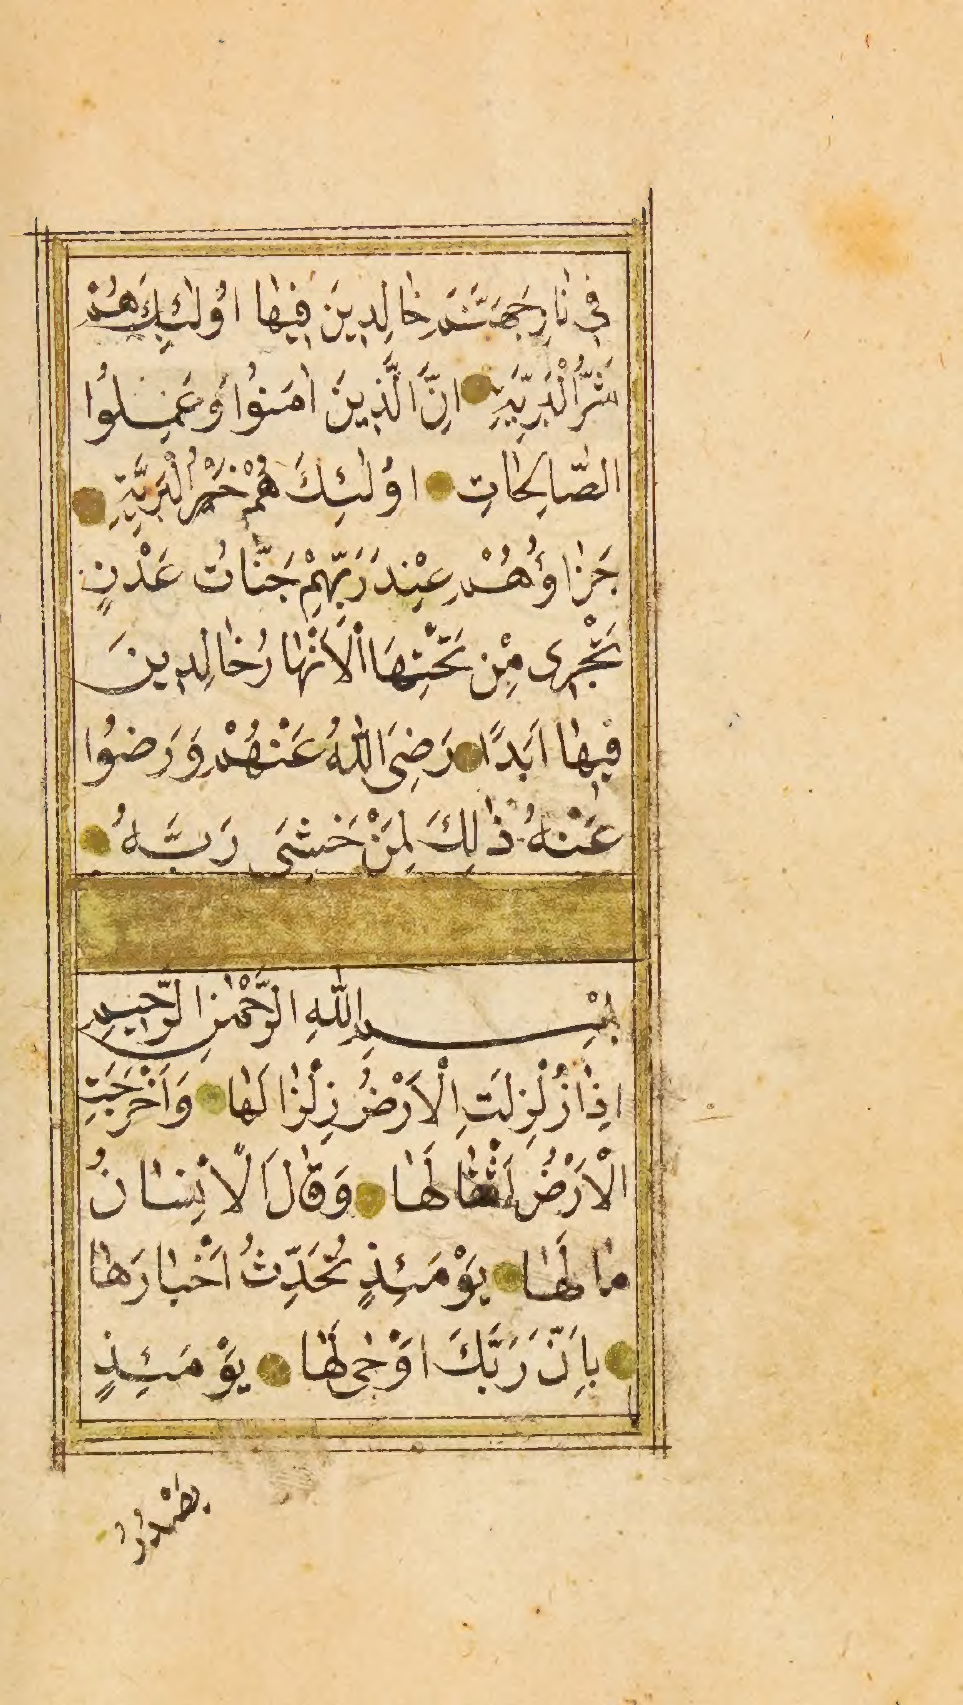 فِي نَارِ جَهَنَّمَ خَالِدِينَ فِيهَا اُولٰئِكَ هُمْ
شَرُّ الْبَرِيَّةِ اِنَّ الَّذِينَ اٰمَنُوا وَعَمِلُوا
الصَّالِحَاتِ اُولٰئِكَ هُمْ خَيْرُ الْبَرِيَّةِ
جَزَاؤُهُمْ عِنْدَ رَبِّهِمْ جَنَّاتُ عَدْنٍ
تَجْرِى مِنْ تَحْتِهَا الْاَنْهَارُ خَالِدِينَ
فِيهَا اَبَدًا رَضِىَ اللّٰهُ عَنْهُمْ وَرَضُوا
عَنْهُ ذٰلِكَ لِمَنْ خَشِىَ رَبَّهُ
بِسْمِ اللّٰهِ الرَّحْمٰنِ الرَّحِيمِ
اِذَا زُلْزِلَتِ الْاَرْضُ زِلْزَالَهَا وَاَخْرَجَتِ
الْاَرْضُ اَثْقَالَهَا وَقَالَ الْاِنْسَانُ
مَا لَهَا يَوْمَئِذٍ تُحَدِّثُ اَخْبَارَهَا
بِاَنَّ رَبَّكَ اَوْحٰى لَهَا يَوْمَئِذٍ
يَصْدُرُ